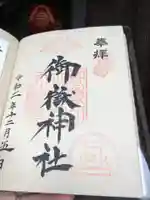 奉拝
御嶽神社
令和二年十二月五日